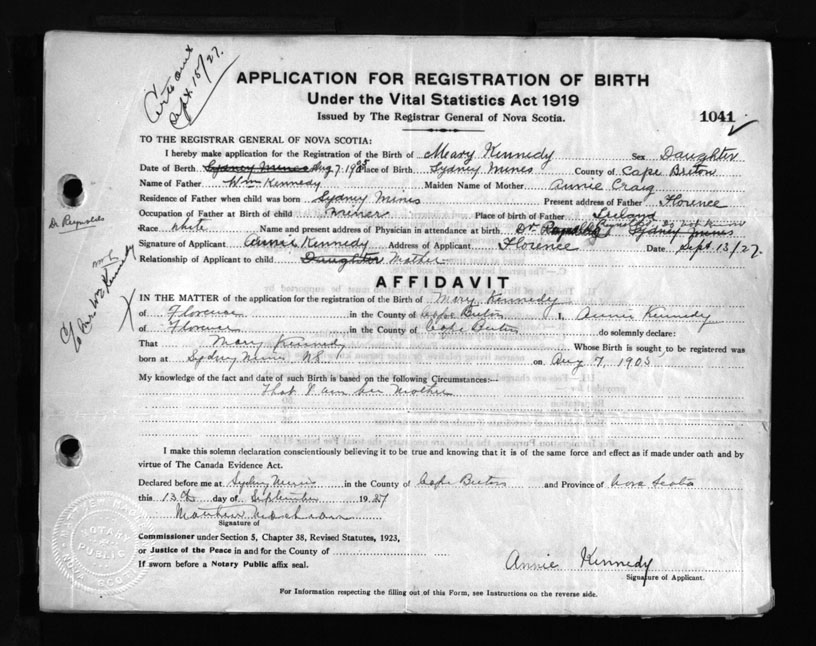 Sept. 15/27.
APPLICATION FOR REGISTRATION OF BIRTH
Under the Vital Statistics Act 1919
Issued by The Registrar General of Nova Scotia.
1041
TO THE REGISTRAR GENERAL OF NOVA SCOTIA:
I hereby make application for the Registration of the Birth of Meary Kennedy Sex Daughter
Date of Birth Sydney Mines Aug 7. 1905 Place of Birth Sydney Mines County of Cape Breton
Name of Father Wm Kennedy Maiden Name of Mother Annie Craig
Residence of Father when child was born Sydney Mines Present address of Father Florence
Occupation of Father at Birth of child Miner Place of birth of Father Ireland
Race white Name and present address of Physician in attendance at birth Dr Sydney Mines
Signature of Applicant Annie Kennedy Address of Applicant Florence Date Sept 13/27.
Relationship of Applicant to child Daughter Mother
Dr Reynolds
c/o Mr Wm Kennedy
AFFIDAVIT
IN THE MATTER of the application for the registration of the Birth of Mary Kennedy
of Florence in the County of Cape Breton I, Annie Kennedy
of Florence in the County of Cape Breton do solemnly declare:
That Mary Kennedy Whose Birth is sought to be registered was
born at Sydney Mines NS on Aug 7, 1905
My knowledge of the fact and date of such Birth is based on the following Circumstances:—
That I am her Mother
I make this solemn declaration conscientiously believing it to be true and knowing that it is of the same force and effect as if made under oath and by
virtue of The Canada Evidence Act.
Declared before me at Sydney Mines in the County of Cape Breton and Province of Nova Scotia
this 13th day of September 1927
Signature of
Commissioner under Section 5, Chapter 38, Revised Statutes, 1923,
or Justice of the Peace in and for the County of
If sworn before a Notary Public affix seal.
NOTARY
PUBLIC
Annie Kennedy
Signature of Applicant.
For Information respecting the filling out of this Form, see Instructions on the reverse side.